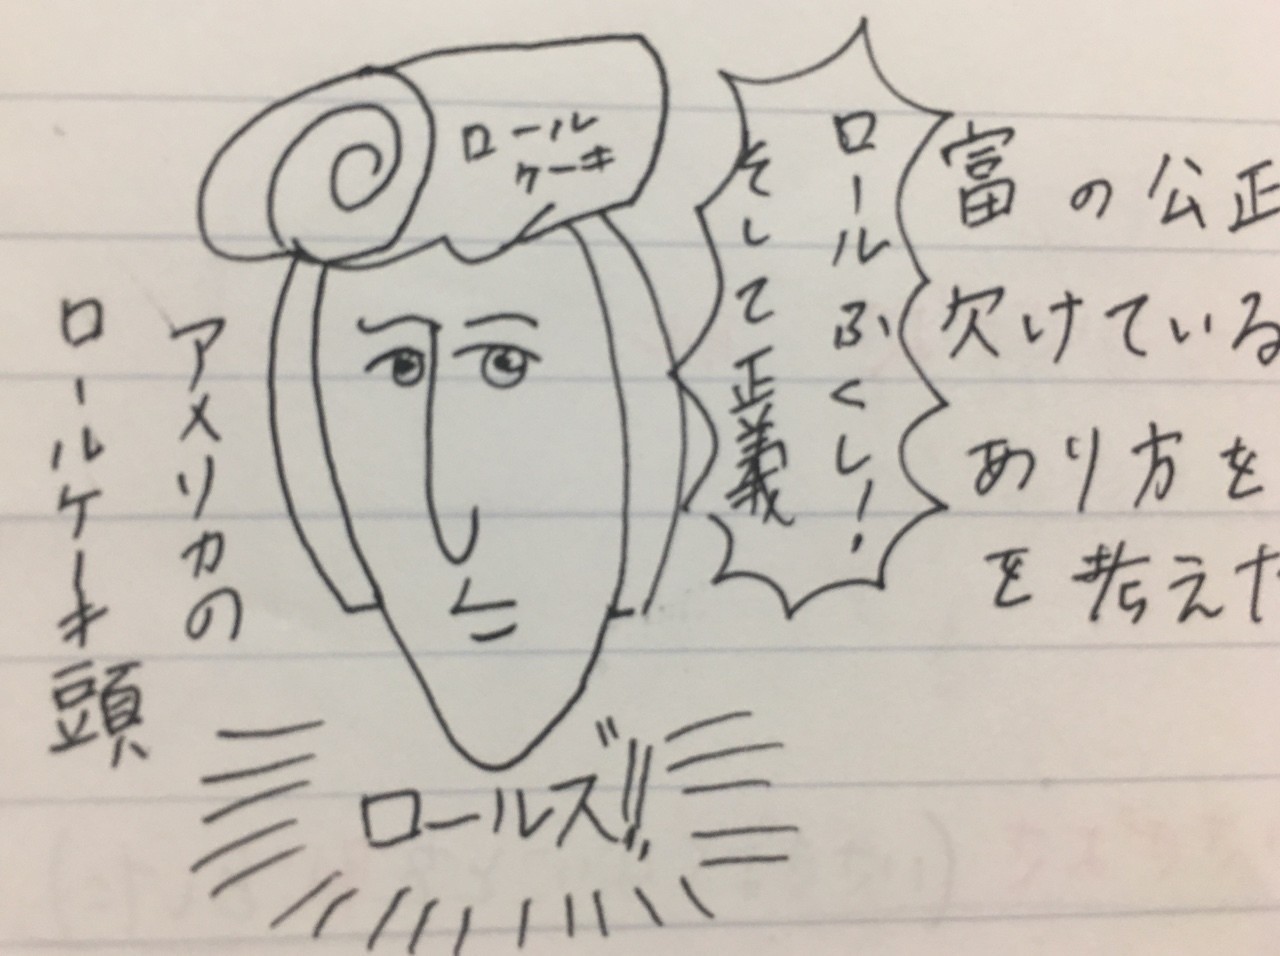 ロール
ケーキ
ロールふくし!
そして正義
富の公正
欠けている
あり方を
を考えた
アメリカの
ロールケーキ頭
ロールズ!!